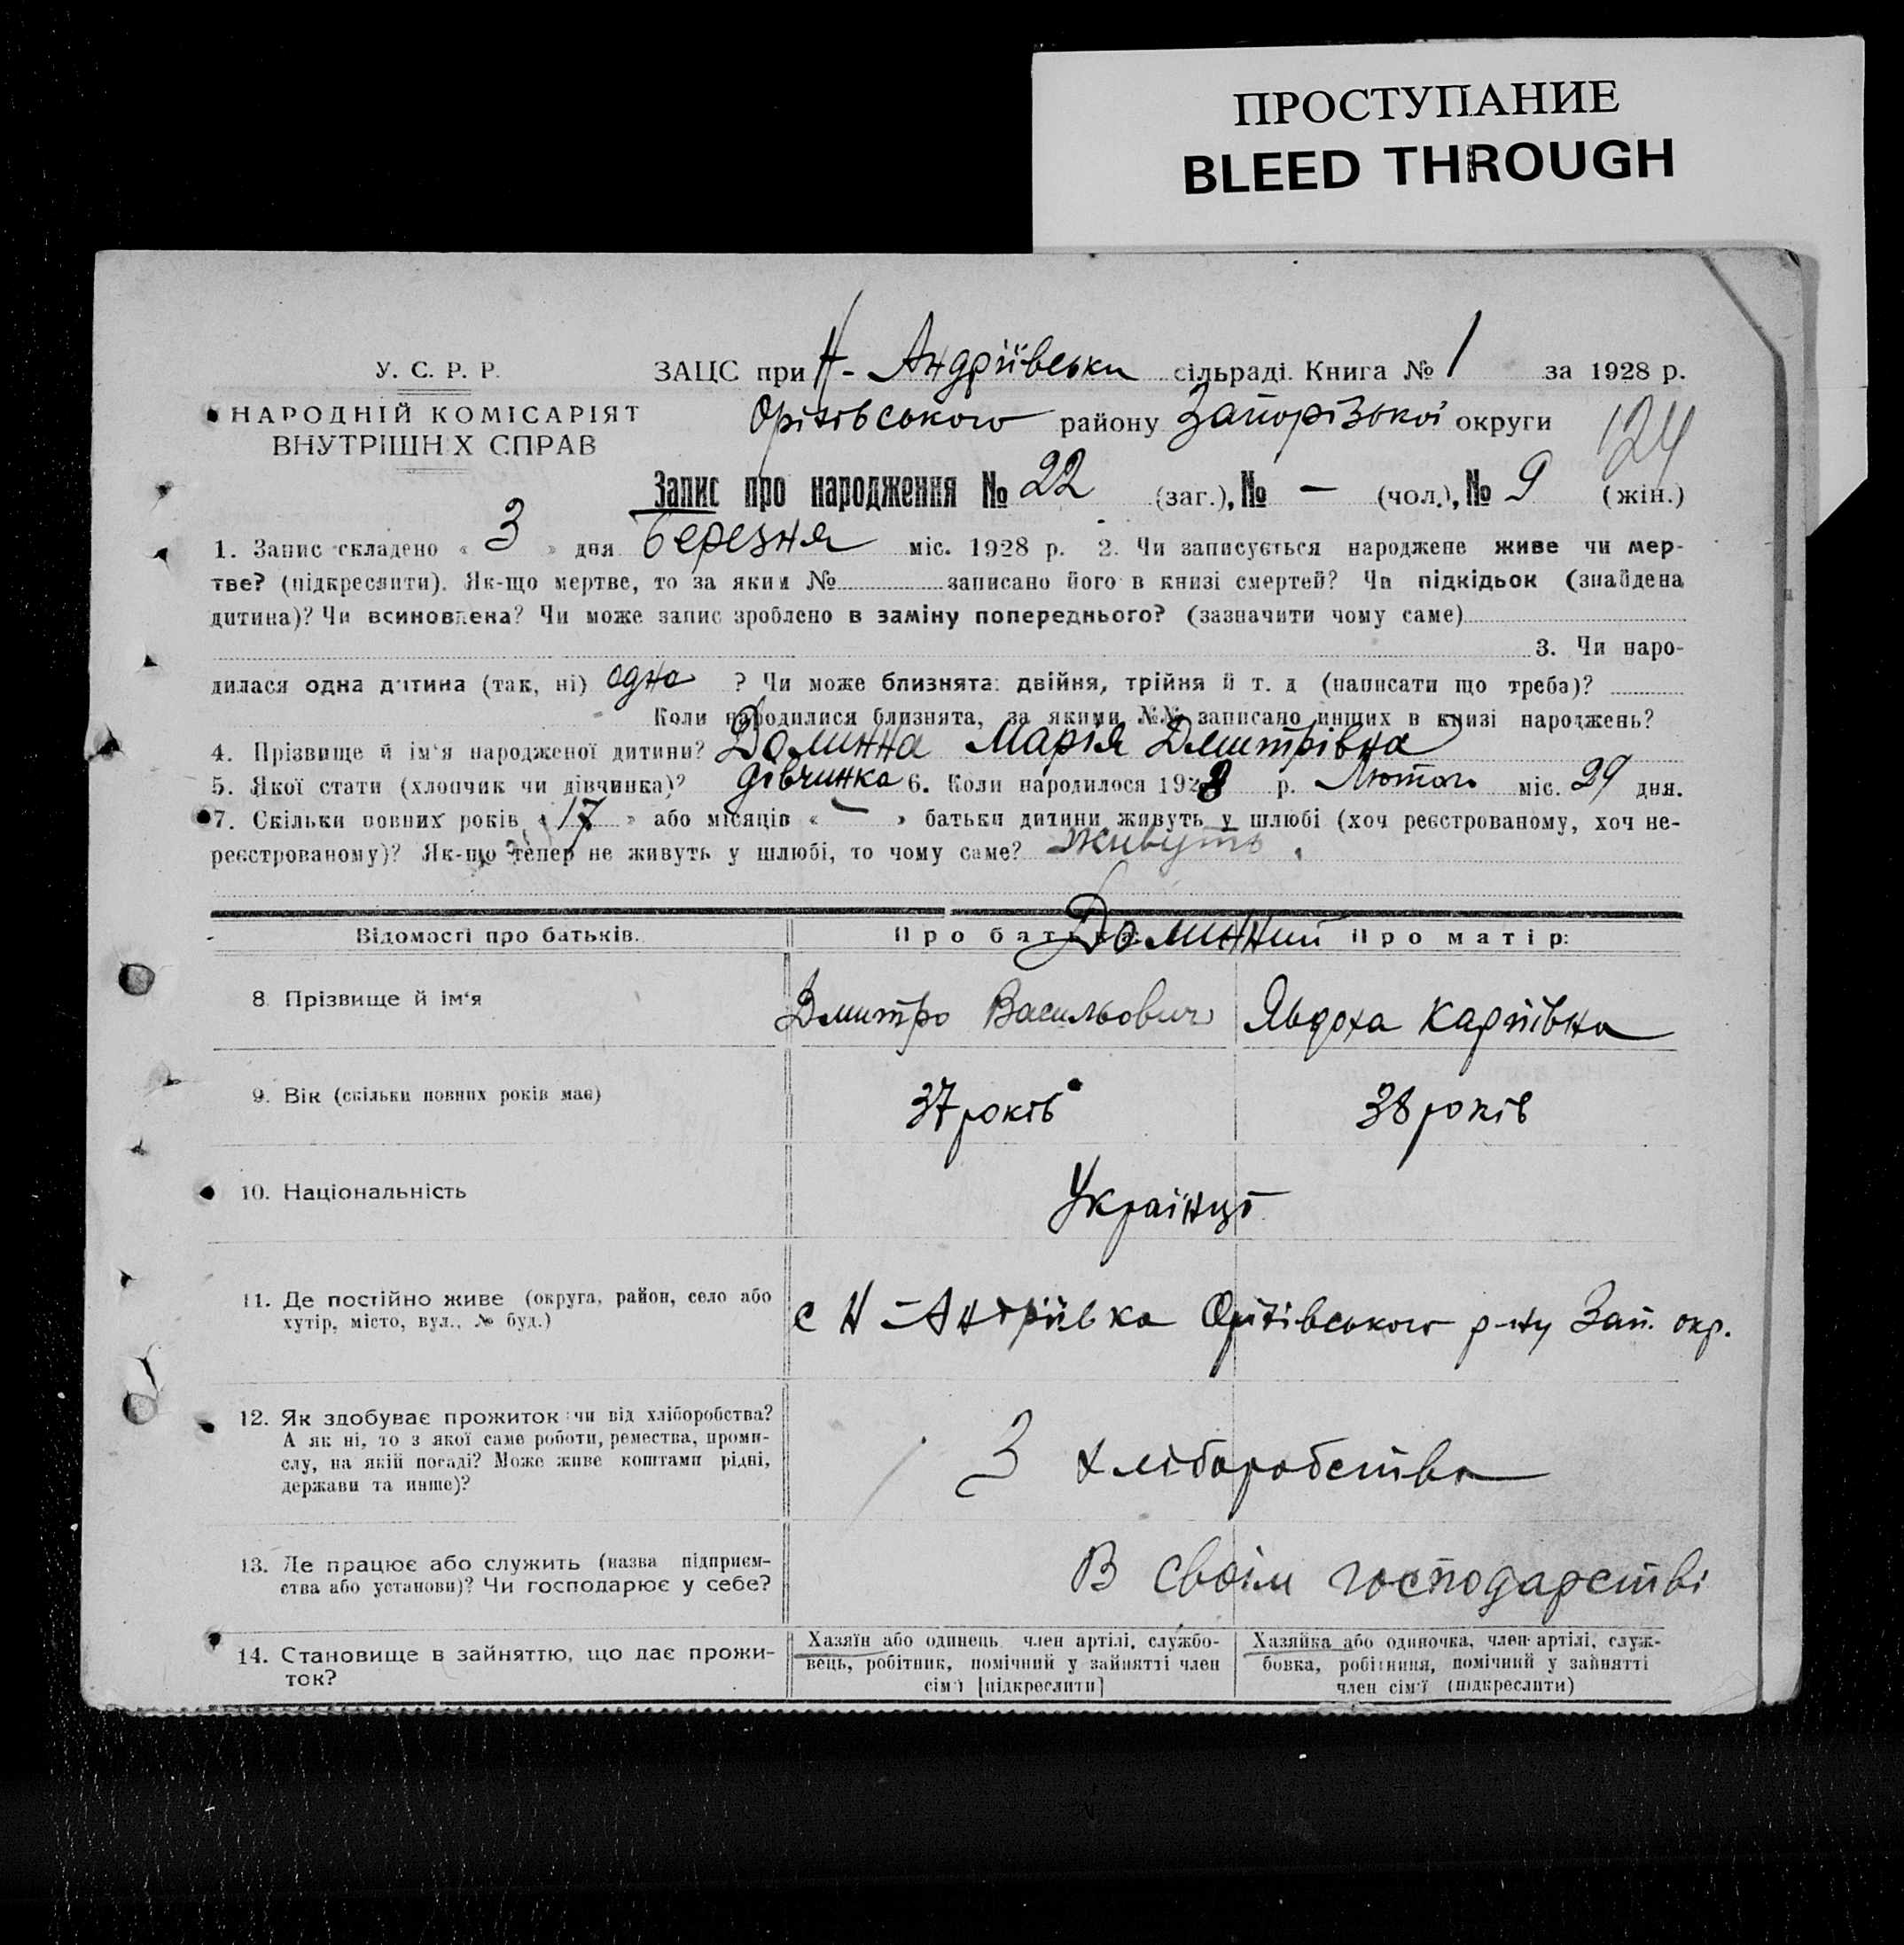 ПРОСТУПАНИЕ
BLEED THROUGH
У. С. Р. Р.
НАРОДНІЙ КОМІСАРІЯТ
ВНУТРІШН Х СПРАВ
ЗАЦС при Н- Андріївськи сільраді. Книга № 1 за 1928 р.
Оріхівського району Запорізької округи
124
Запис про народження № 22 (заг.), № — (чол.), № 9 (жін.)
1. Запис складено « 3 » дня березня міс. 1928 р. 2. Чи записується народжене живе чи мер-
тве? (підкреслити). Як-що мертве, то за яким № записано його в книзі смертей? Чи підкідьок (знайдена
дитина)? Чи всиновлена? Чи може запис зроблено в заміну попереднього? (зазначити чому саме)
3. Чи наро-
дилася одна дитина (так, ні) одно ? Чи може близнята: двійня, трійня й т. д (написати що треба)?
Коли народилися близнята, за якими №№ записано инших в книзі народжень?
4. Прізвище й ім'я народженої дитини? Долинна Марія Дмитрівна
5. Якої стати (хлопчик чи дівчинка)? дівчинка 6. Коли народилося 1928 р. Лютого міс. 29 дня.
7. Скільки повних років « 17 » або місяців « — » батьки дитини живуть у шлюбі (хоч реєстрованому, хоч не-
реєстрованому)? Як-що тепер не живуть у шлюбі, то чому саме? живуть
Відомості про батьків. Про батька: Долинний Про матір:
8. Прізвище й ім'я Дмитро Васильович Явдоха Карпівна
9. Вік (скільки повних років має) 37 років 38 років
10. Національність Українці
11. Де постійно живе (округа, район, село або
хутір, місто, вул., № буд.)
с Н-Андріївка Оріхівського р-ну Зап. окр.
12. Як здобуває прожиток: чи від хліборобства?
А як ні, то з якої саме роботи, ремества, проми-
слу, на якій посаді? Може живе коштами рідні,
держави та инше)?
З хліборобства
13. Де працює або служить (назва підприєм-
ства або установи)? Чи господарює у себе?
В своїм господарстві
14. Становище в зайняттю, що дає прожи-
ток?
Хазяїн або одинець, член артілі, службо-
вець, робітник, помічний у зайнятті член
сім'ї [підкреслити]
Хазяйка або одиночка, член артілі, служ-
бовка, робітниця, помічний у зайнятті
член сім'ї (підкреслити)